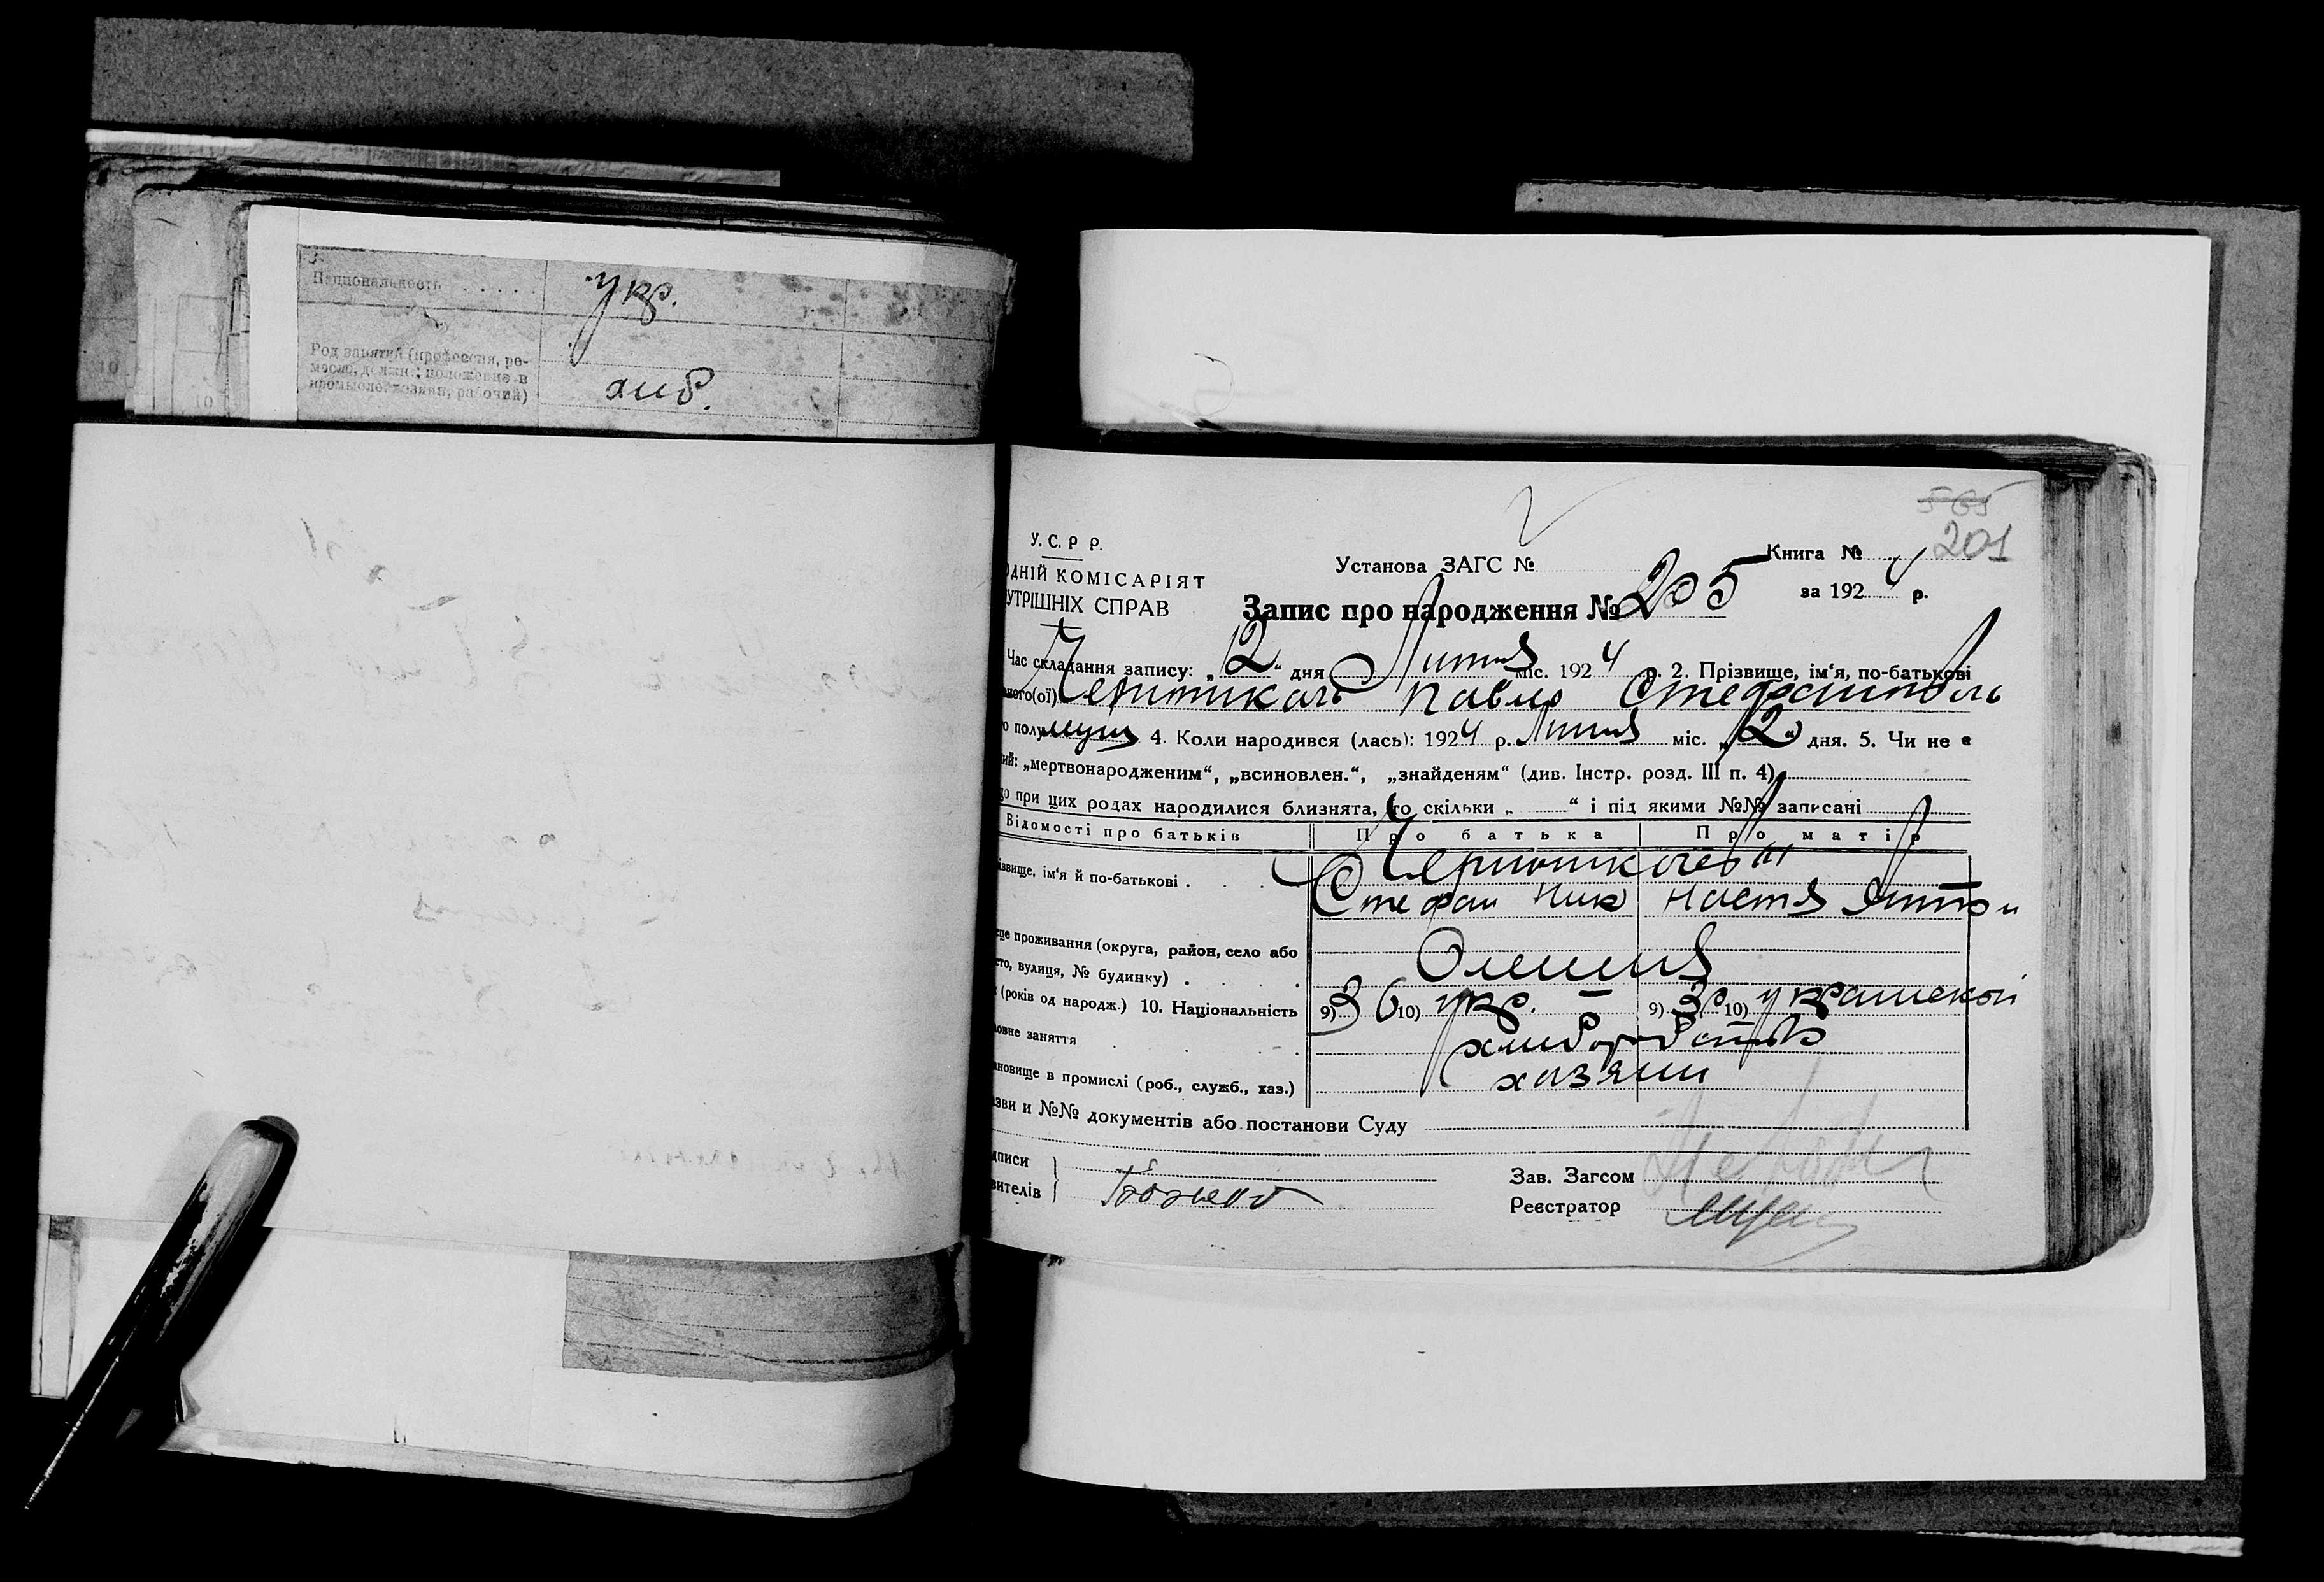 Национальность . . . . . укр.
Род занятий (профессия, ре-
месло, должн.; положение в
промысле: хозяин, рабочий) хиб.
10
565
201
У. С. Р. Р.
ОДНІЙ КОМІСАРІЯТ
УТРІШНІХ СПРАВ
Установа ЗАГС №
Книга №
за 192 4 р.
Запис про народження № 205
Час складання запису: „ 12 “ дня Липня міс. 1924 р. 2. Прізвище, ім‘я, по-батькові
ного(ої) Павло
о полу муж 4. Коли народився (лась): 1924 р. Липня міс. „ 12 “ дня. 5. Чи не є
ий: „мертвонародженим“, „всиновлен.“, „знайденям“ (див. Інстр. розд. III п. 4)
що при цих родах народилися близнята, то скільки „ “ і під якими №№ записані
Відомості про батьків Про батька Про матір
ізвище, ім‘я й по-батькові .
Стефан Ник Настя Антон
це проживання (округа, район, село або
сто, вулиця, № будинку) . Олешня
(років од народж.) 10. Національність 9) 36 10) укр. 9) 30 10) украинской
овне заняття хлиборобство
ановище в промислі (роб., служб., хаз.) хазяин
зви и №№ документів або постанови Суду
дписи
вителів
Зав. Загсом
Реєстратор